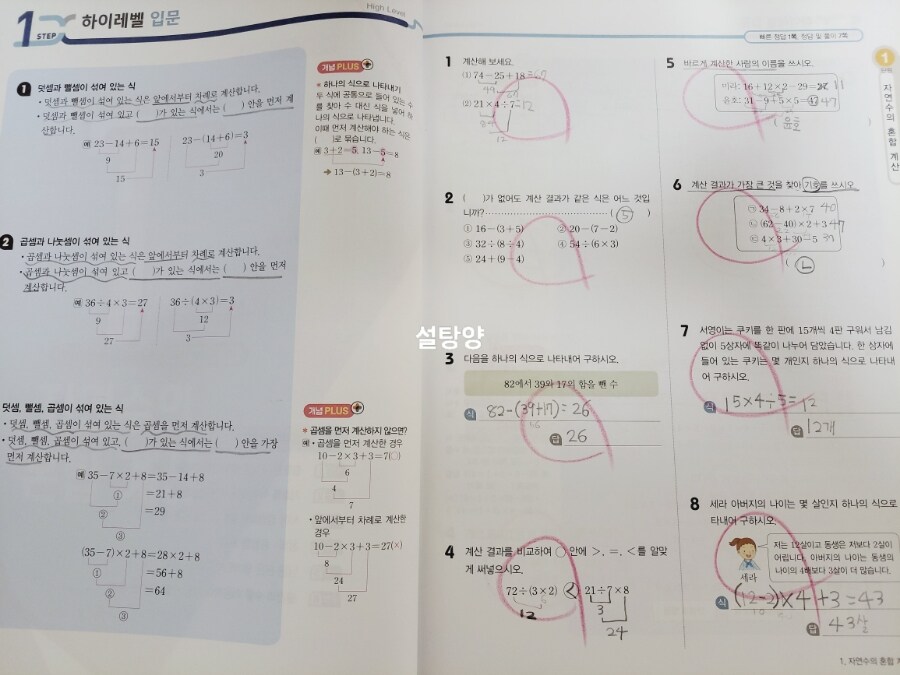 1 STEP 하이레벨 입문
High Level
1 덧셈과 뺄셈이 섞여 있는 식
• 덧셈과 뺄셈이 섞여 있는 식은 앞에서부터 차례로 계산합니다.
• 덧셈과 뺄셈이 섞여 있고 ( )가 있는 식에서는 ( ) 안을 먼저 계
산합니다.
예 23−14+6=15 23−(14+6)=3
9 20
15 3
2 곱셈과 나눗셈이 섞여 있는 식
• 곱셈과 나눗셈이 섞여 있는 식은 앞에서부터 차례로 계산합니다.
• 곱셈과 나눗셈이 섞여 있고 ( )가 있는 식에서는 ( ) 안을 먼저
계산합니다.
예 36÷4×3=27 36÷(4×3)=3
9 12
27 3
덧셈, 뺄셈, 곱셈이 섞여 있는 식
• 덧셈, 뺄셈, 곱셈이 섞여 있는 식은 곱셈을 먼저 계산합니다.
• 덧셈, 뺄셈, 곱셈이 섞여 있고, ( )가 있는 식에서는 ( ) 안을 가장
먼저 계산합니다.
예 35−7×2+8=35−14+8
① =21+8
② =29
③
(35−7)×2+8=28×2+8
① =56+8
② =64
③
개념 PLUS
* 하나의 식으로 나타내기
두 식에 공통으로 들어 있는 수
를 찾아 수 대신 식을 넣어 하
나의 식으로 나타냅니다.
이때 먼저 계산해야 하는 식은
( )로 묶습니다.
예 3+2=5, 13−5=8
➔ 13−(3+2)=8
개념 PLUS
* 곱셈을 먼저 계산하지 않으면?
예 • 곱셈을 먼저 계산한 경우
10−2×3+3=7(○)
6
4
7
• 앞에서부터 차례로 계산한
경우
10−2×3+3=27(×)
8
24
27
설탕양
빠른 정답 1쪽, 정답 및 풀이 7쪽
1 계산해 보세요.
(1) 74−25+18
49
(2) 21×4÷7=12
84
12
2 ( )가 없어도 계산 결과가 같은 식은 어느 것입
니까? ( ⑤ )
① 16−(3+5) ② 20−(7−2)
③ 32÷(8÷4) ④ 54÷(6×3)
⑤ 24+(9−4)
3 다음을 하나의 식으로 나타내어 구하시오.
82에서 39와 17의 합을 뺀 수
식 82-(39+17)=26
56
답 26
4 계산 결과를 비교하여 ○ 안에 >, =, <를 알맞
게 써넣으시오.
72÷(3×2) < 21÷7×8
12 3
24
5 바르게 계산한 사람의 이름을 쓰시오.
미라: 16+12×2−29= 11
윤호: 31−9+5×5= 47
( 윤호 )
6 계산 결과가 가장 큰 것을 찾아 기호를 쓰시오.
㉠ 34−8+2×7 40
㉡ (62−40)×2+3 47
㉢ 4×3+30−5
( ㉡ )
7 서영이는 쿠키를 한 판에 15개씩 4판 구워서 남김
없이 5상자에 똑같이 나누어 담았습니다. 한 상자에
들어 있는 쿠키는 몇 개인지 하나의 식으로 나타내
어 구하시오.
식 15×4÷5=12
답 12개
8 세라 아버지의 나이는 몇 살인지 하나의 식으로
타내어 구하시오.
저는 12살이고 동생은 저보다 2살이
어립니다. 아버지의 나이는 동생의
나이의 4배보다 3살이 더 많습니다.
세라
식 (12-2)×4+3=43
답 43살
1 자연수의 혼합 계산
1. 자연수의 혼합 계